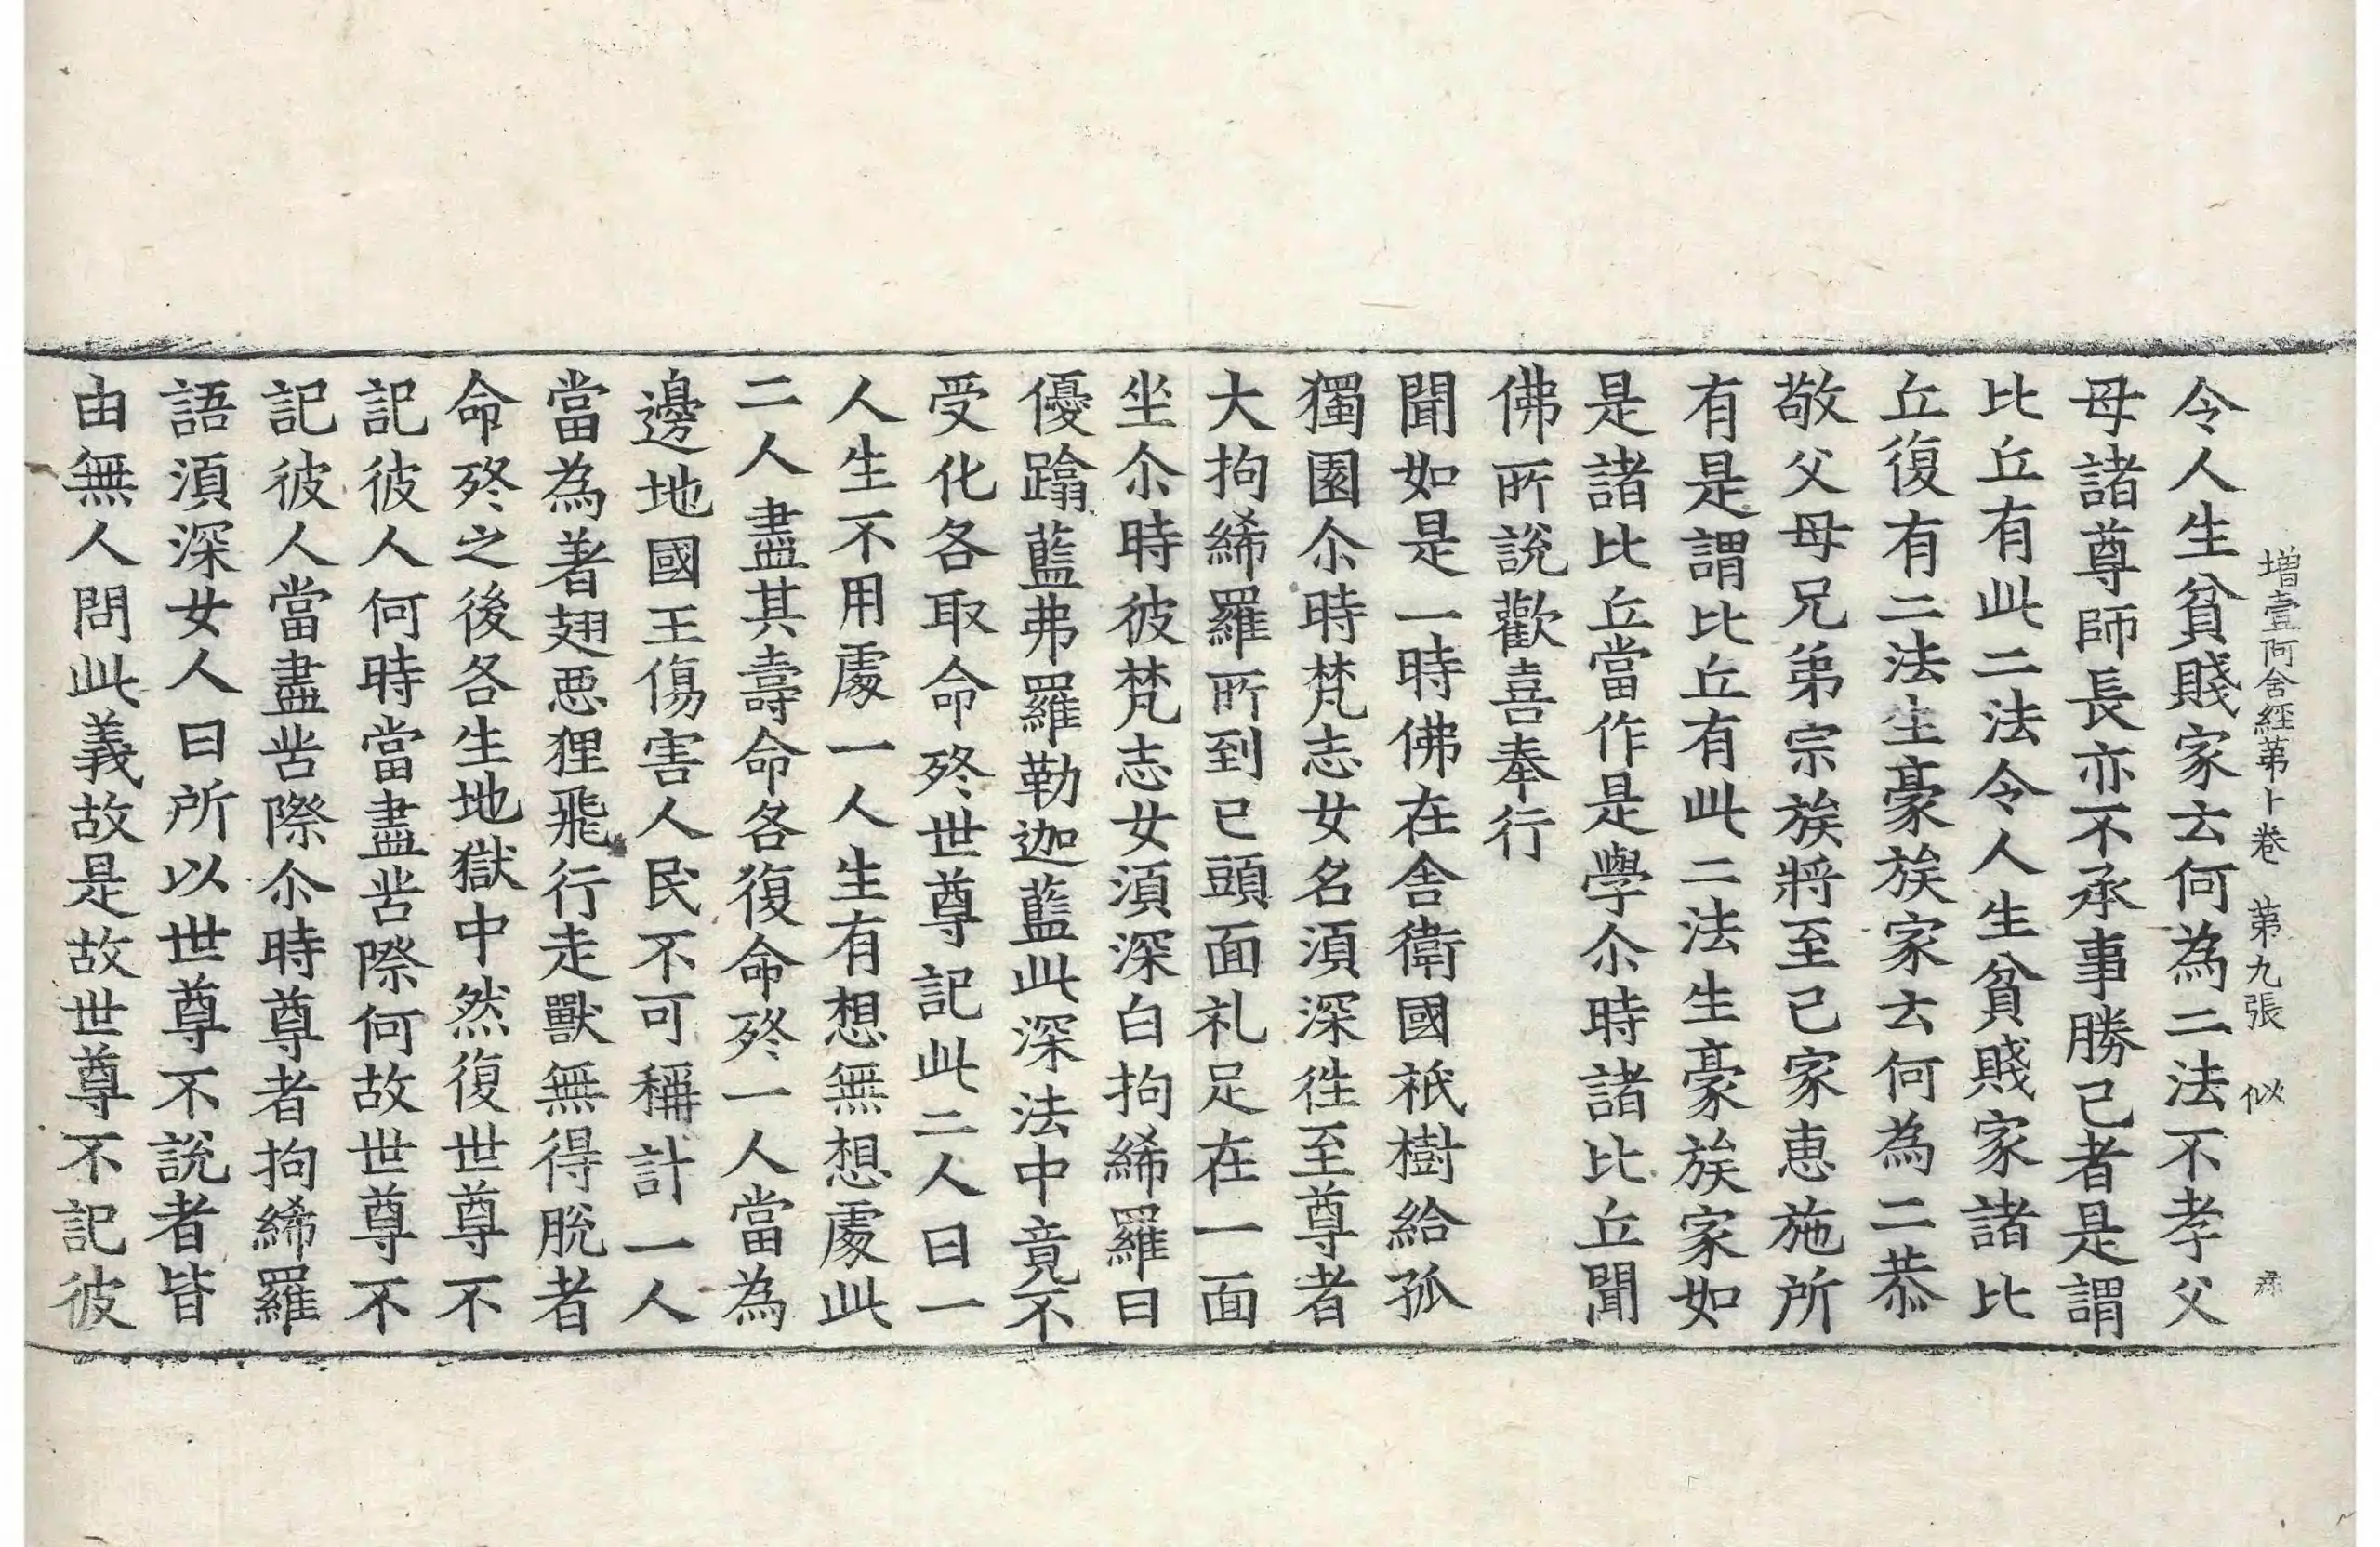 增壹阿含經第卜卷 第九張 似
令人生貧賤家云何為二法不孝父
母諸尊師長亦不承事勝己者是謂
比丘有此二法令人生貧賤家諸比
丘復有二法生豪族家云何為二恭
敬父母兄弟宗族將至己家恵施所
有是謂比丘有此二法生豪族家如
是諸比丘當作是學尒時諸比丘聞
佛所說歡喜奉行
聞如是一時佛在舍衛國祇樹給孤
獨園尒時梵志女名湏深徃至尊者
大拘絺羅所到已頭面礼足在一面
坐尒時彼梵志女湏深白拘絺羅曰
優蹹藍弗羅勒迦藍此深法中竟不
受化各取命終世尊記此二人曰一
人生不用處一人生有想無想處此
二人盡其壽命各復命終一人當為
邊地國王傷害人民不可稱計一人
當為著翅惡狸飛行走獸無得脫者
命終之後各生地獄中然復世尊不
記彼人何時當盡苦際何故世尊不
記彼人當盡苦際尒時尊者拘絺羅
語湏深女人曰所以世尊不說者皆
由無人問此義故是故世尊不記彼